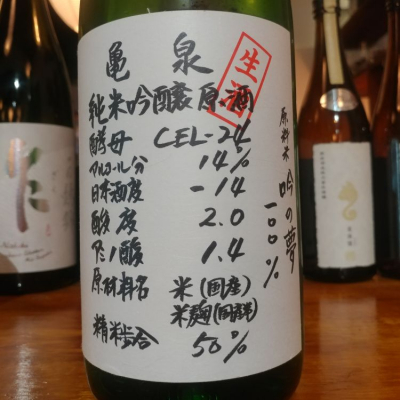 亀泉
生酒
純米吟醸原酒
酵母 CEL-24
アルコール分 14%
日本酒度 -14
酸度 2.0
アミノ酸 1.4
原材料名 米(国産)
米麹(国産)
精米歩合 50%
原料米 吟の夢 一〇〇%